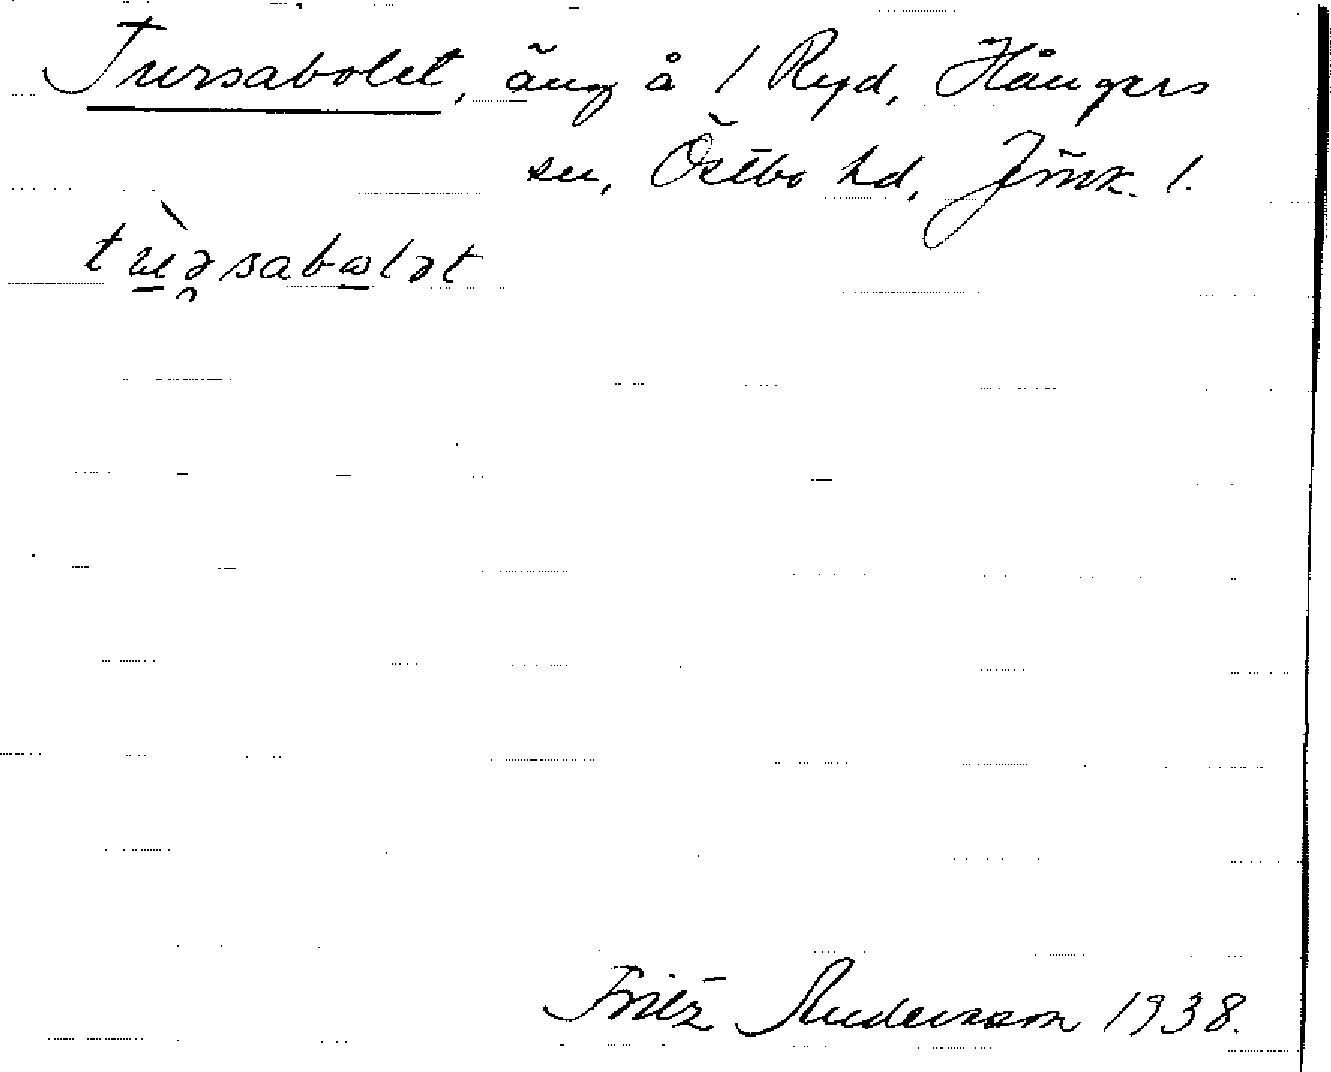 Tursabolet, äng å 1 Ryd, Hångers
sn, Östbo hd, Jönk. l.
tu̠ə̯rsabωlət
Fritz Andersson 1938.